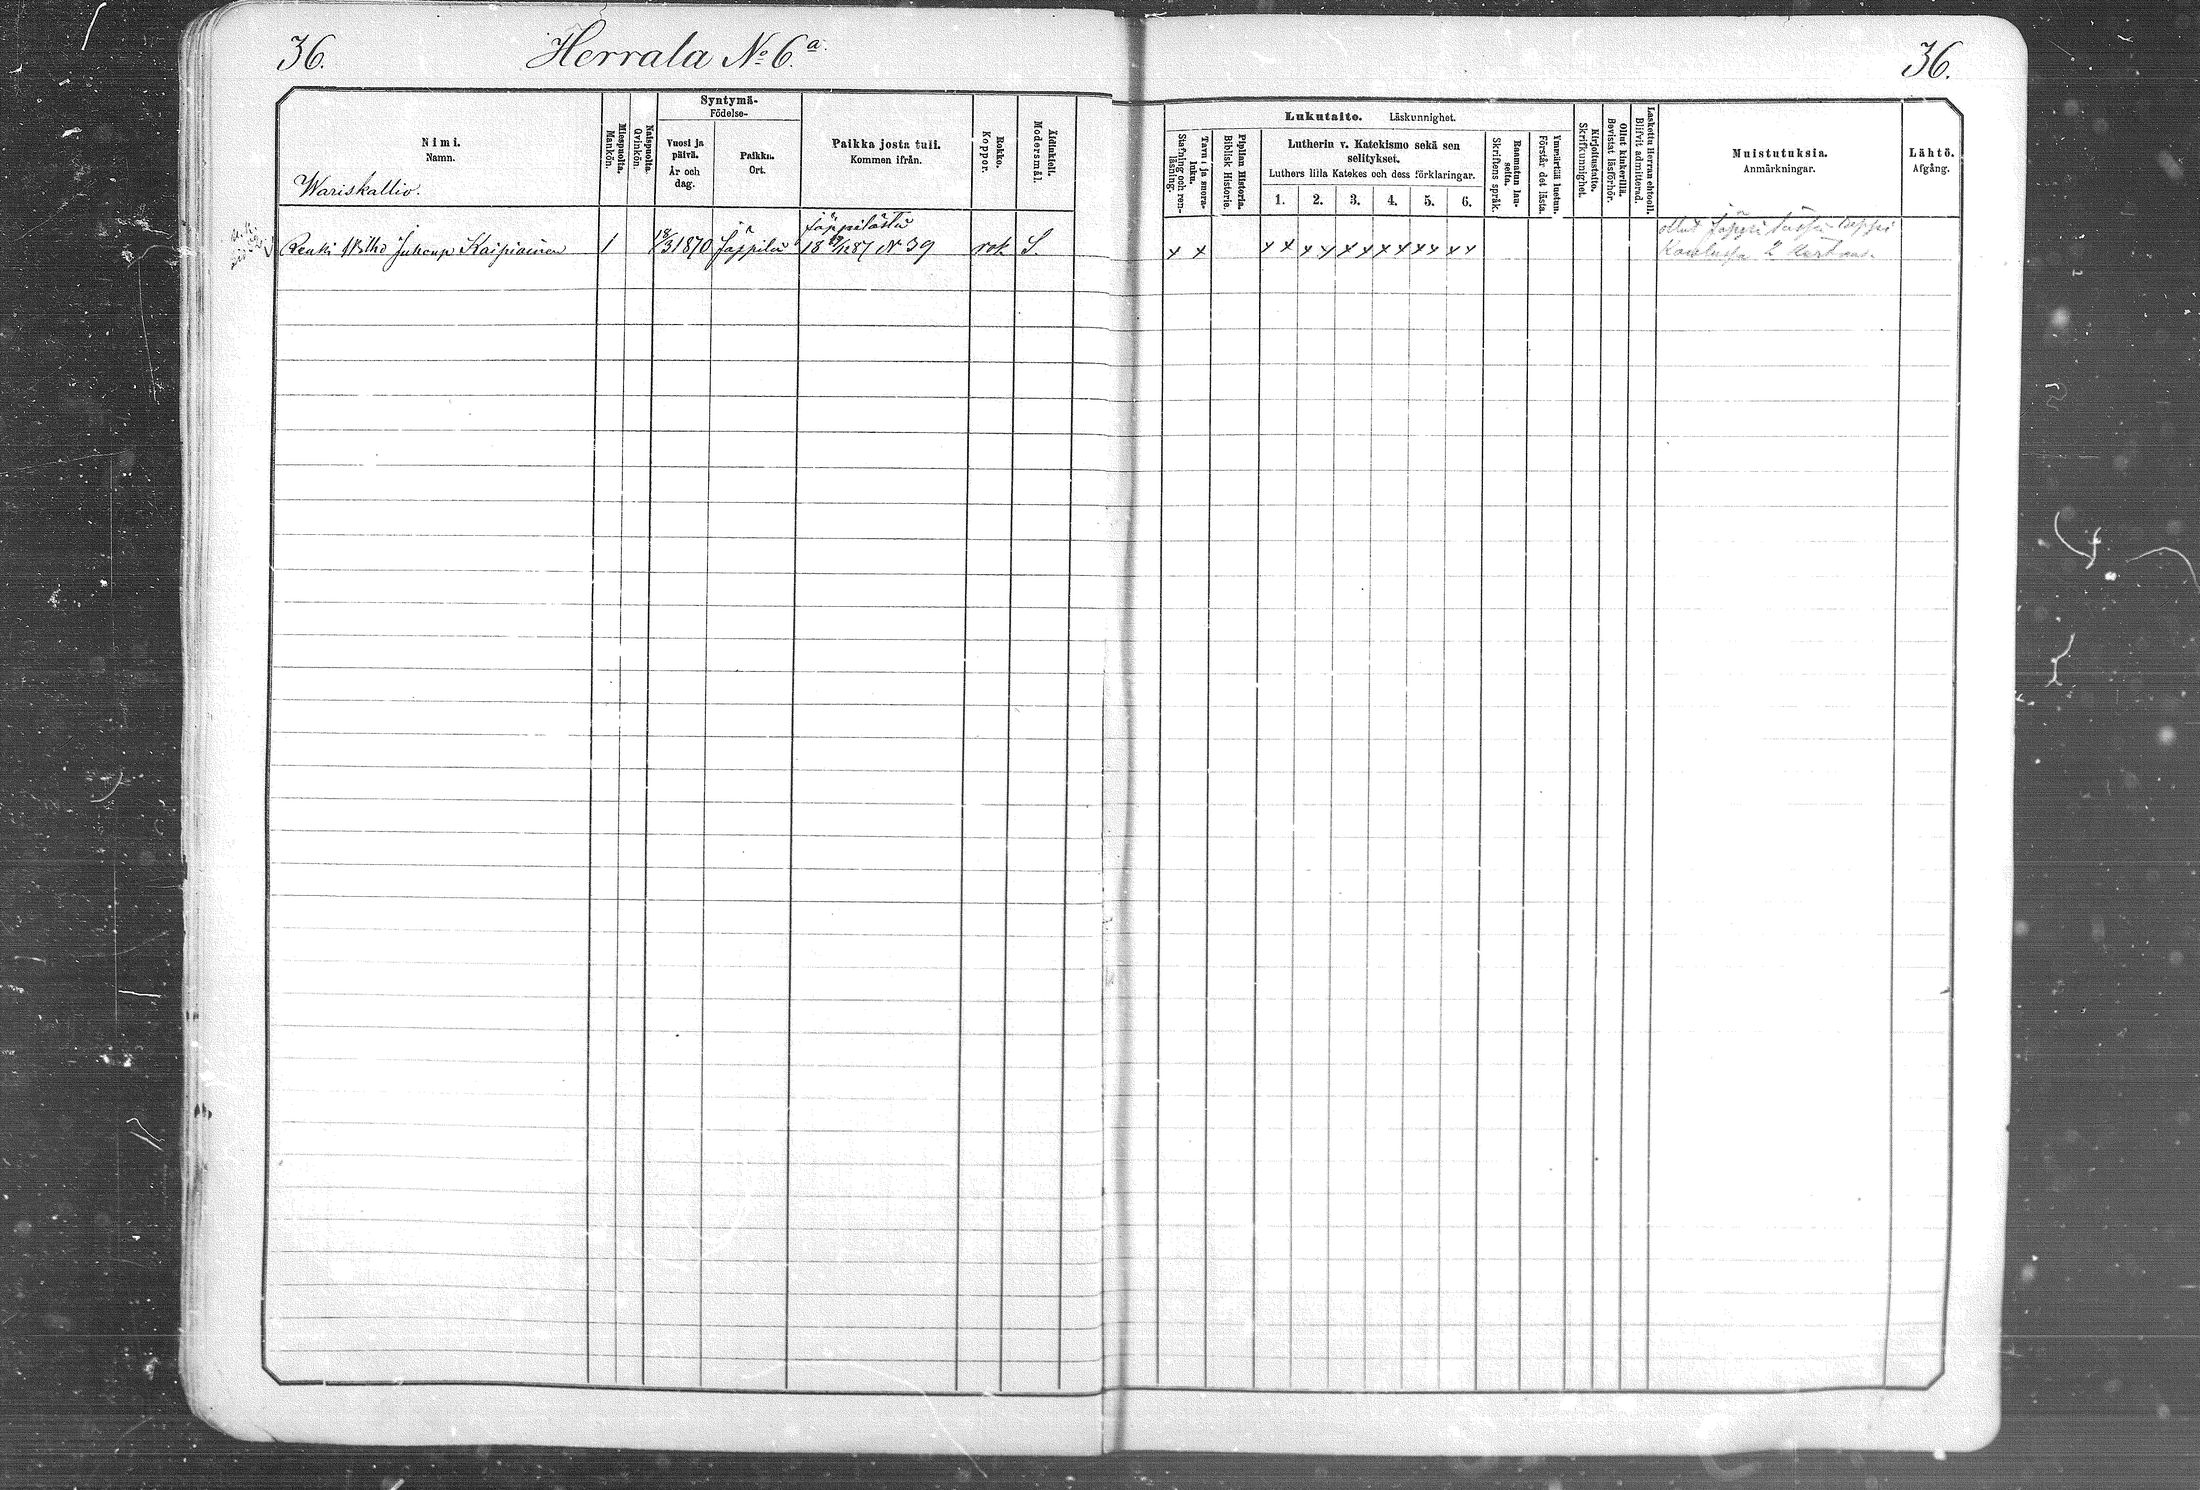 36.
Herrala No 6.a
36.
Nimi.
Namn.
Wariskallio.
Miespuolta.
Mankön.
Naispuolta.
Qvinkön.
Syntymä-
Födelse-
Vuosi ja
päivä.
År och
dag.
Paikka.
Ort.
Paikka josta tuli.
Kommen ifrån.
Rokko.
Koppor.
Äidinkieli.
Modersmål.
Lukutaito. Läskunnighet.
Tavu ja suora-
luku.
Stafning och ren-
läsning.
Pipliau Historia.
Biblisk Historie.
Lutherin v. Katekismo sekä sen
selitykset.
Luthers lilla Katekes och dess förklaringar.
1. 2. 3. 4. 5. 6.
Raamatun lau-
seita.
Skriftens språk.
Ymmärtää luetun.
Förstår det lästa.
Kirjoitustaito.
Skrifkunnighet.
Ollut kinkerillä.
Bevistat läsförhör.
Laskettu Herran ehtooll.
Blifvit admitterad.
Muistutuksia.
Anmärkningar.
Lähtö.
Afgång.
Jäppilästä
Renki Wilho Juhonp. Kaipiainen 1 18/3 1870 Jäppilä 18 /12 87 N 39 rok S. x x x x x x x x x x x x x x
ollut
2